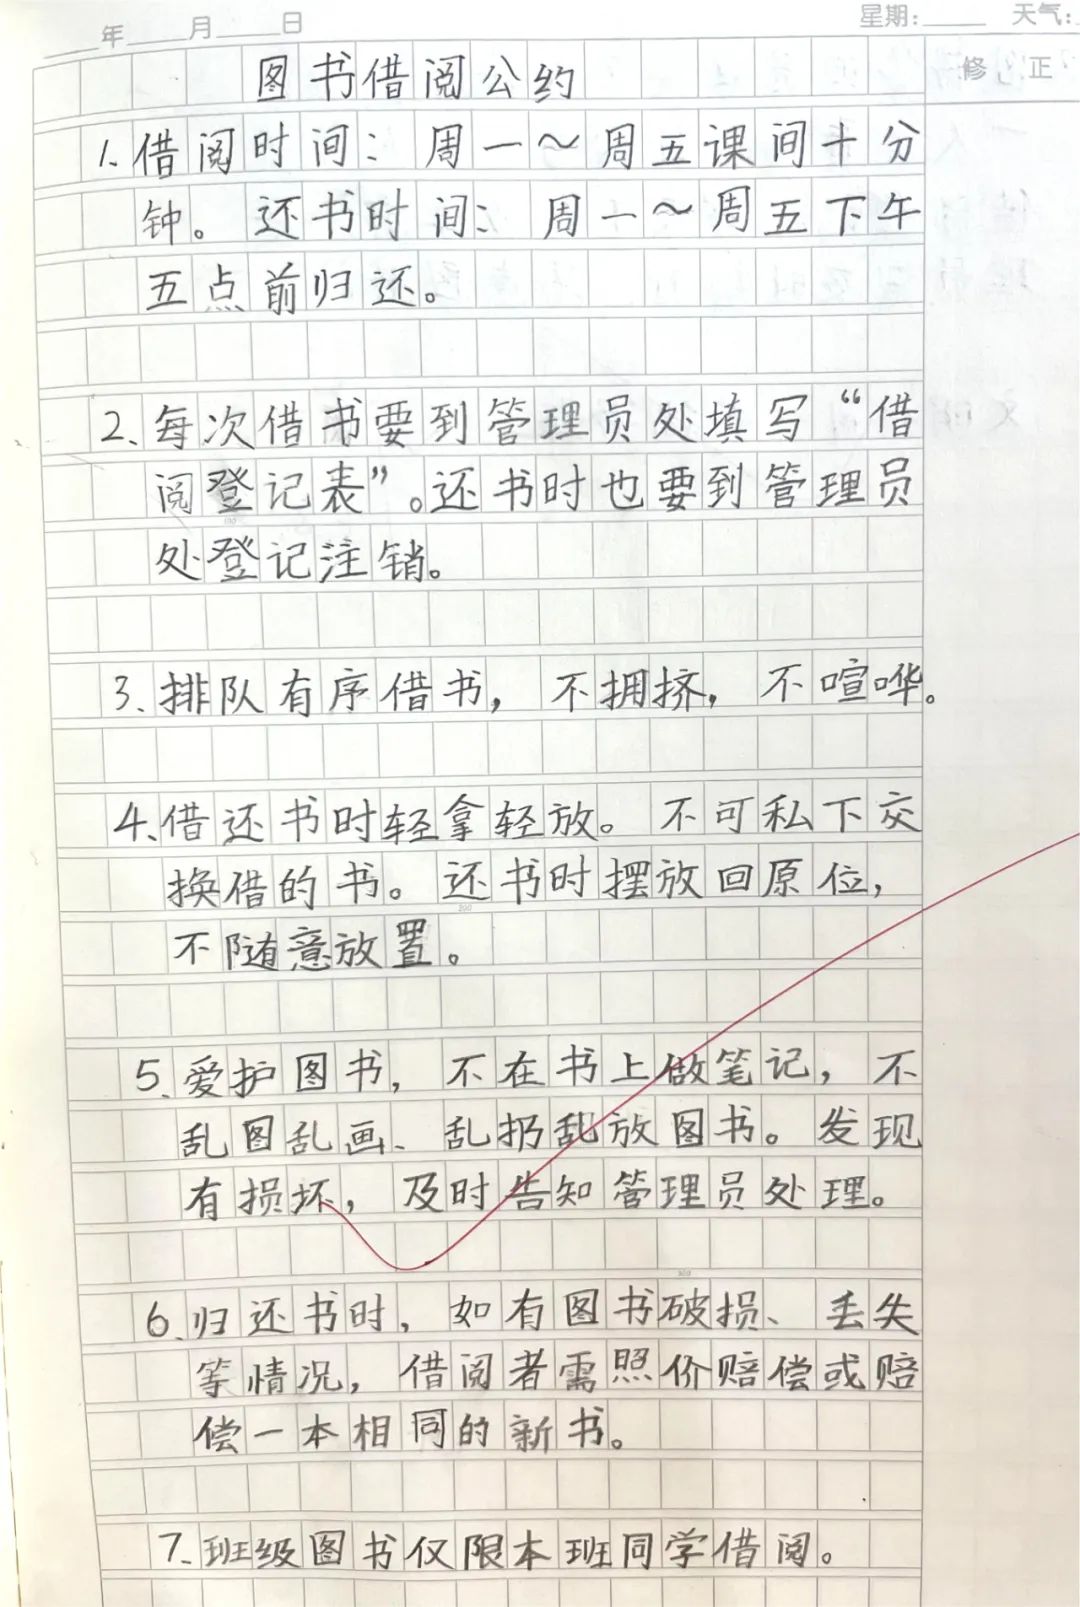 ____年____月____日 星期:____ 天气:
修 正
图书借阅公约
1、借阅时间：周一～周五课间十分
钟。还书时间：周一～周五下午
五点前归还。
2、每次借书要到管理员处填写“借
阅登记表”。还书时也要到管理员
处登记注销。
3、排队有序借书，不拥挤，不喧哗。
4、借还书时轻拿轻放。不可私下交
换借的书。还书时摆放回原位，
不随意放置。
5、爱护图书，不在书上做笔记，不
乱图乱画、乱扔乱放图书。发现
有损坏，及时告知管理员处理。
6、归还书时，如有图书破损、丢失
等情况，借阅者需照价赔偿或赔
偿一本相同的新书。
7、班级图书仅限本班同学借阅。